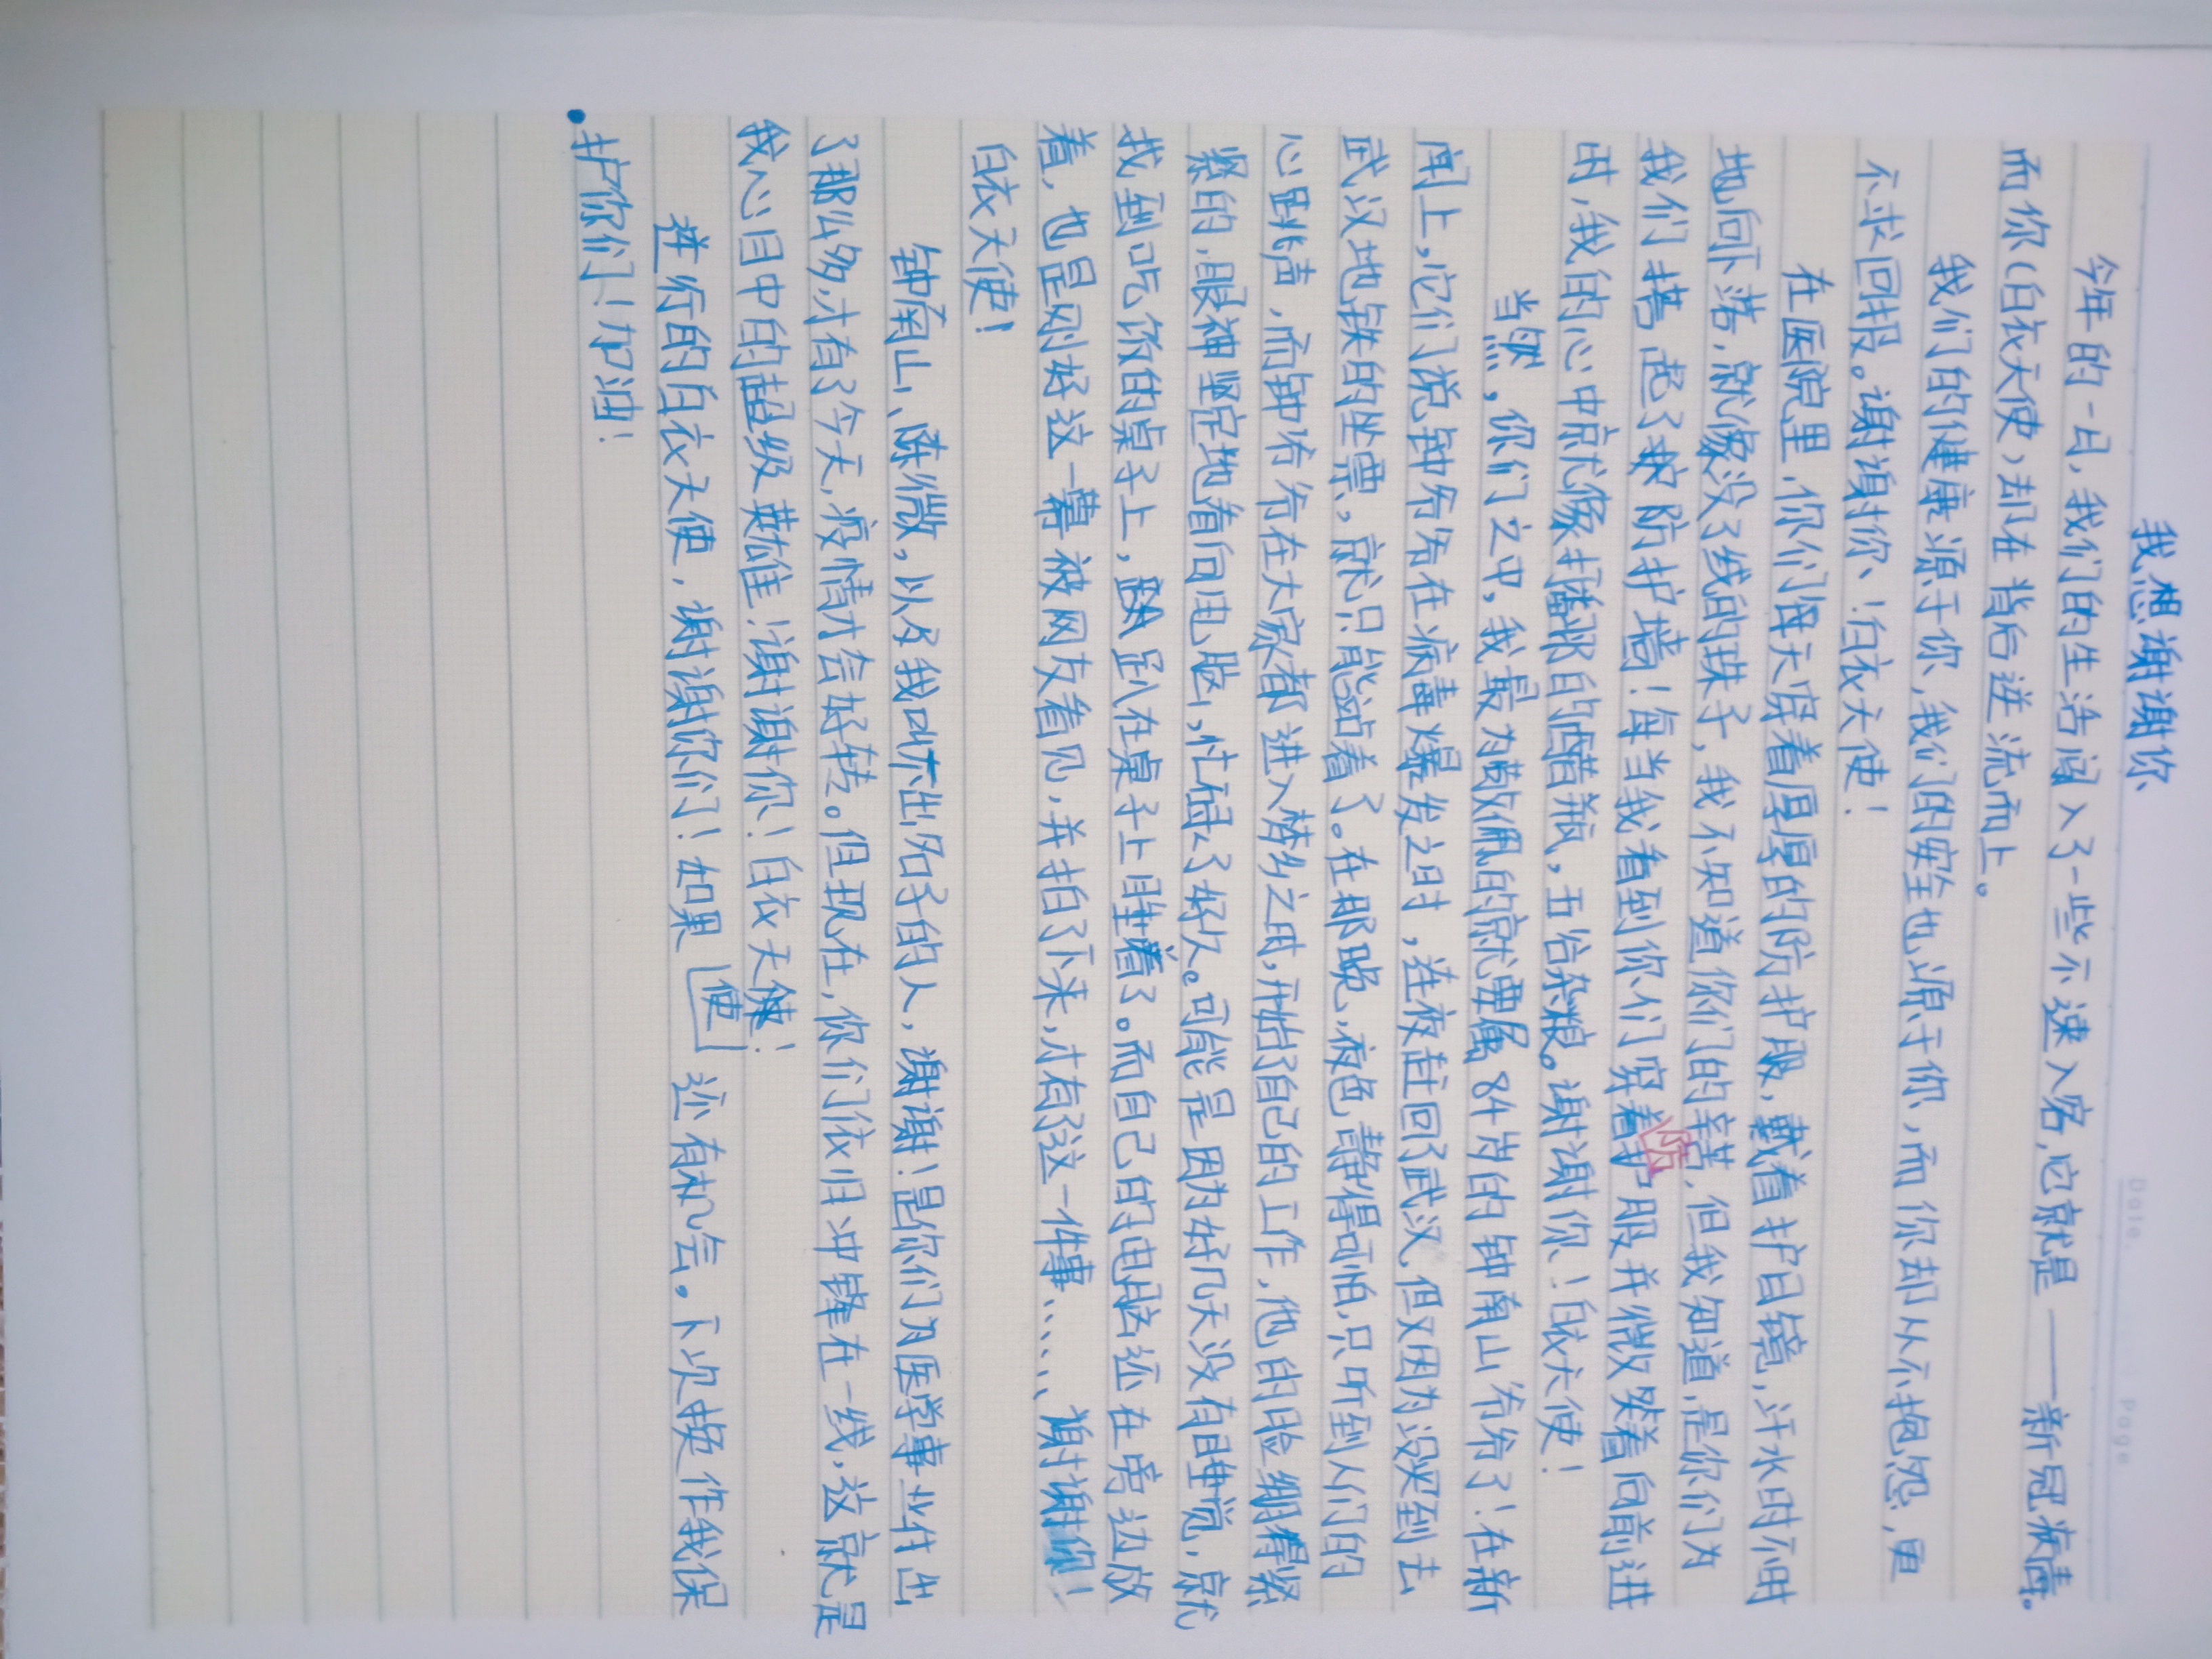 我想谢谢你
Date. Page
今年的一月，我们的生活闯入了一些不速入客，它就是——新冠病毒。
而你（白衣天使）却在背后逆流而上。
我们的健康源于你，我们的安全也源于你，而你却从不抱怨，更
不求回报。谢谢你！白衣天使！
在医院里，你们每天穿着厚厚的防护服，戴着护目镜，汗水时不时
地向下落，就像没了线的珠子，我不知道你们的辛苦，但我知道，是你们为
我们搭起了 防护墙！每当我看到你们穿着防护服并微笑着向前进
时，我的心中就像打翻的醋瓶，五谷杂粮。谢谢你！白衣天使！
当然，你们之中，我最为敬佩的就要属84岁的钟南山爷爷了！在新
闻上，它们说钟爷爷在病毒爆发之时，连夜赶回了武汉，但又因为没买到去
武汉地铁的坐票，就只能站着了。在那晚，夜色静得可怕，只听到人们的
心跳声，而钟爷爷在大家都进入梦乡之时，开始了自己的工作，他的脸绷得紧
紧的，眼神坚定地看向电脑，忙碌了好久。可能是因为好几天没有睡觉，就
找到吃饭的桌子上，趴在桌子上睡着了。而自己的电脑还在旁边放
着，也是刚好这一幕被网友看见，并拍了下来，才有了这一件事、、、、、谢谢你！
白衣天使！
钟南山、陈微，以及我叫不出名子的人，谢谢！是你们为医学事业付出
了那么多，才有了今天，疫情才会好转。但现在，你们依旧冲锋在一线，这就是
我心目中的超级英雄！谢谢你！白衣天使！
使
逆行的白衣天使，谢谢你们！如果 还有机会。下次换作我保
护你们！加油！